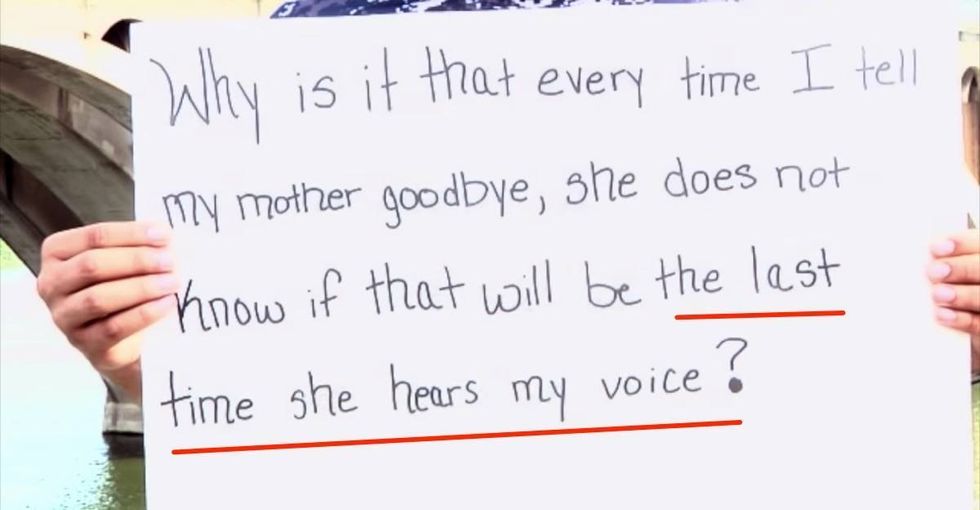 Why is it that every time I tell
my mother goodbye, she does not
know if that will be the last
time she hears my voice?